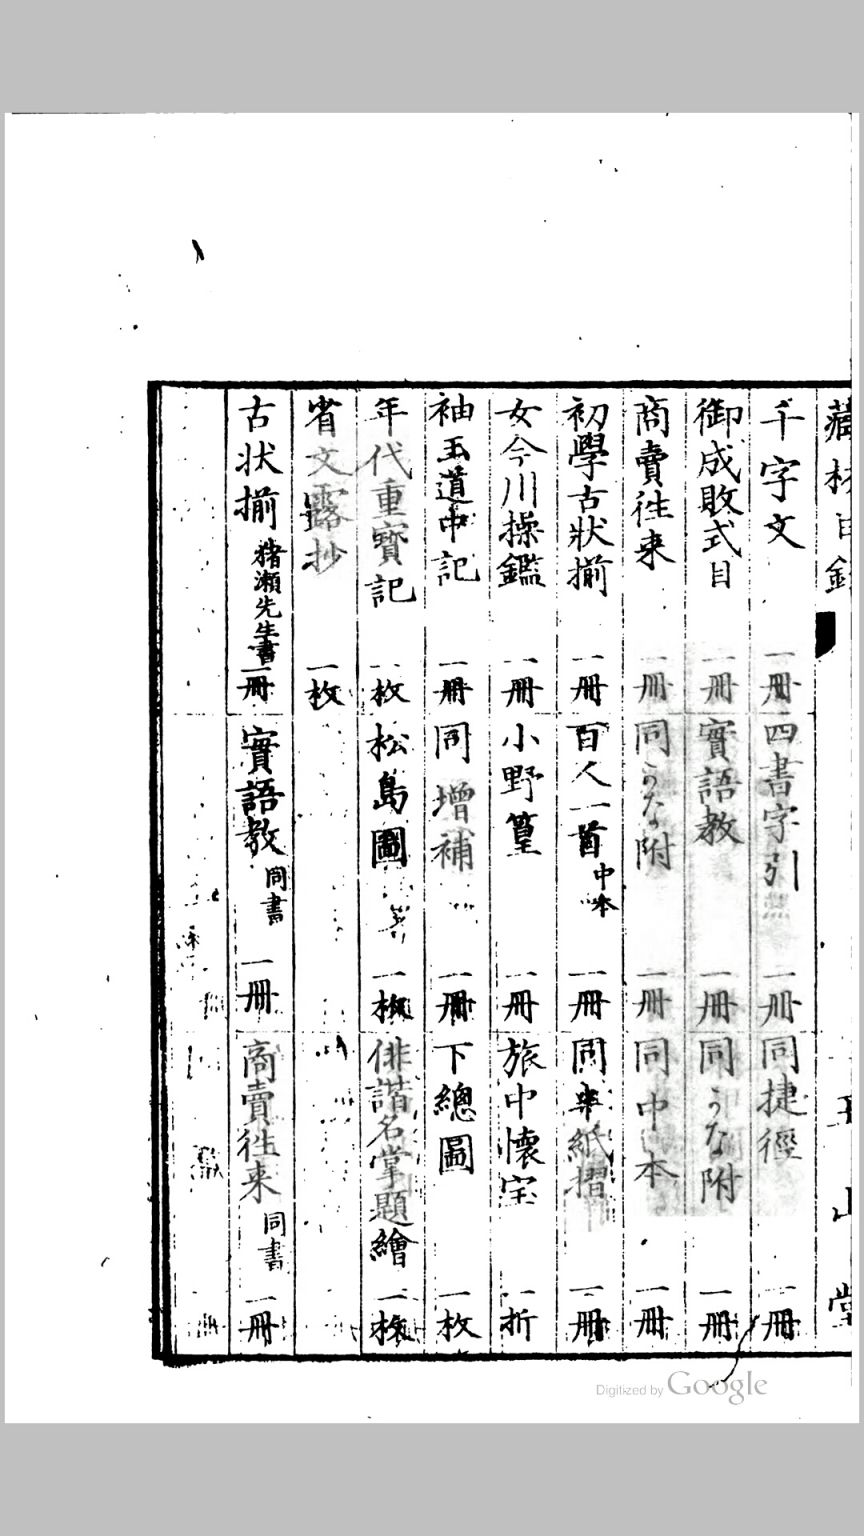 千字文 一冊 四書字引 一冊 同捷徑 一冊
御成敗式目 一冊 實語教 一冊 同かな附 一冊
商賣往来 一冊 同かな附 一冊 同中本 一冊
初學古状揃 一冊 百人一首 中本 一冊 同半紙摺 一冊
女今川操鑑 一冊 小野篁 一冊 旅中懐宝 一折
袖玉道中記 一冊 同増補 一冊 下總圖 一枚
年代重寳記 一枚 松島圖 一枚 俳諧名掌題繪 一枚
省文露抄 一枚
古状揃 猪瀬先生書 一冊 實語教 同書 一冊 商賣往来 同書 一冊
Digitized by Google